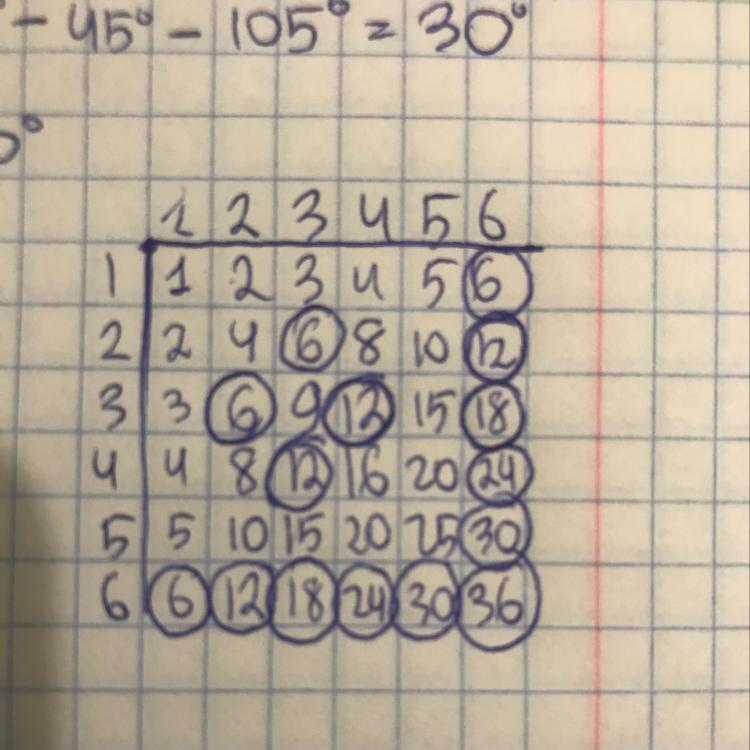 - 45° - 105° = 30°
0°
1 2 3 4 5 6
1 1 2 3 4 5 6
2 2 4 6 8 10 12
3 3 6 9 12 15 18
4 4 8 12 16 20 24
5 5 10 15 20 25 30
6 6 12 18 24 30 36